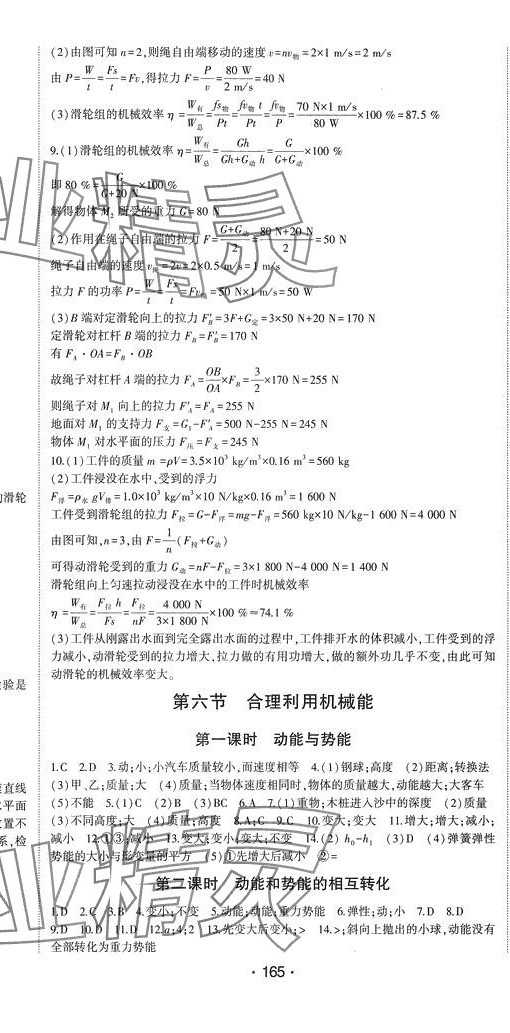 (2)由图可知 n=2,则绳自由端移动的速度 v=nv物=2×1 m/s=2 m/s
由 P=W/t=Fs/t=Fv,得拉力 F=P/v=80 W/2 m/s=40 N
(3)滑轮组的机械效率 η=W有/W总=fs物/Pt=fv物t/Pt=fv物/P=70 N×1 m/s/80 W×100 %=87.5 %
9.(1)滑轮组的机械效率 η=W有/W总=Gh/Gh+G动h=G/G+G动×100 %
即 80 %=G/G+20 N×100 %
解得物体 M2 所受的重力 G=80 N
(2)作用在绳子自由端的拉力 F=G+G动/2=80 N+20 N/2=50 N
绳子自由端的速度 v绳=2v=2×0.5 m/s=1 m/s
拉力 F 的功率 P=W/t=Fs/t=Fv绳=50 N×1 m/s=50 W
(3)B 端对定滑轮向上的拉力 F′B=3F+G定=3×50 N+20 N=170 N
定滑轮对杠杆 B 端的拉力 FB=F′B=170 N
有 FA·OA=FB·OB
故绳子对杠杆 A 端的拉力 FA=OB/OA×FB=3/2×170 N=255 N
则绳子对 M1 向上的拉力 F′A=FA=255 N
地面对 M1 的支持力 F支=G1-F′A=500 N-255 N=245 N
物体 M1 对水平面的压力 F压=F支=245 N
10.(1)工件的质量 m=ρV=3.5×10³ kg/m³×0.16 m³=560 kg
(2)工件浸没在水中,受到的浮力
F浮=ρ水 gV排=1.0×10³ kg/m³×10 N/kg×0.16 m³=1 600 N
工件受到滑轮组的拉力 F拉=G-F浮=mg-F浮=560 kg×10 N/kg-1 600 N=4 000 N
由图可知,n=3,由 F=1/n(F拉+G动)
可得动滑轮受到的重力 G动=nF-F拉=3×1 800 N-4 000 N=1 400 N
滑轮组向上匀速拉动浸没在水中的工件时机械效率
η=W有/W总=F拉h/Fs=F拉/nF=4 000 N/3×1 800 N×100 %≈74.1 %
(3)工件从刚露出水面到完全露出水面的过程中,工件排开水的体积减小,工件受到的浮
力减小,动滑轮受到的拉力增大,拉力做的有用功增大,做的额外功几乎不变,由此可知
动滑轮的机械效率变大。
第六节 合理利用机械能
第一课时 动能与势能
1.C 2.D 3.动;小;小汽车质量较小,而速度相等 4.(1)钢球;高度 (2)距离;转换法
(3)甲、乙;质量;大 (4)质量;当物体速度相同时,物体的质量越大,动能越大;大客车
(5)不能 5.(1)C (2)B (3)BC 6.A 7.(1)重物;木桩进人沙中的深度 (2)质量
(3)不同高度;大 (4)质量;高度 8.A;C 9.C 10.变大;变大 11.增大;增大;减小;
减小 12.①③;减小 13.变大;变小;变大;不变 14.(2) h0-h1 (3)D (4)弹簧弹性
势能的大小与形变量的平方 (5)①先增大后减小 ②=
第二课时 动能和势能的相互转化
1.D 2.C 3.B 4.变小;不变 5.动能;动能;重力势能 6.弹性;动;小 7.D 8.D
9.D 10.D 11.D 12.a;4;2 13.先变大后变小;> 14.>;斜向上抛出的小球,动能没有
全部转化为重力势能
· 165 ·
滑轮
验是
直线
水平面
置不
系,检